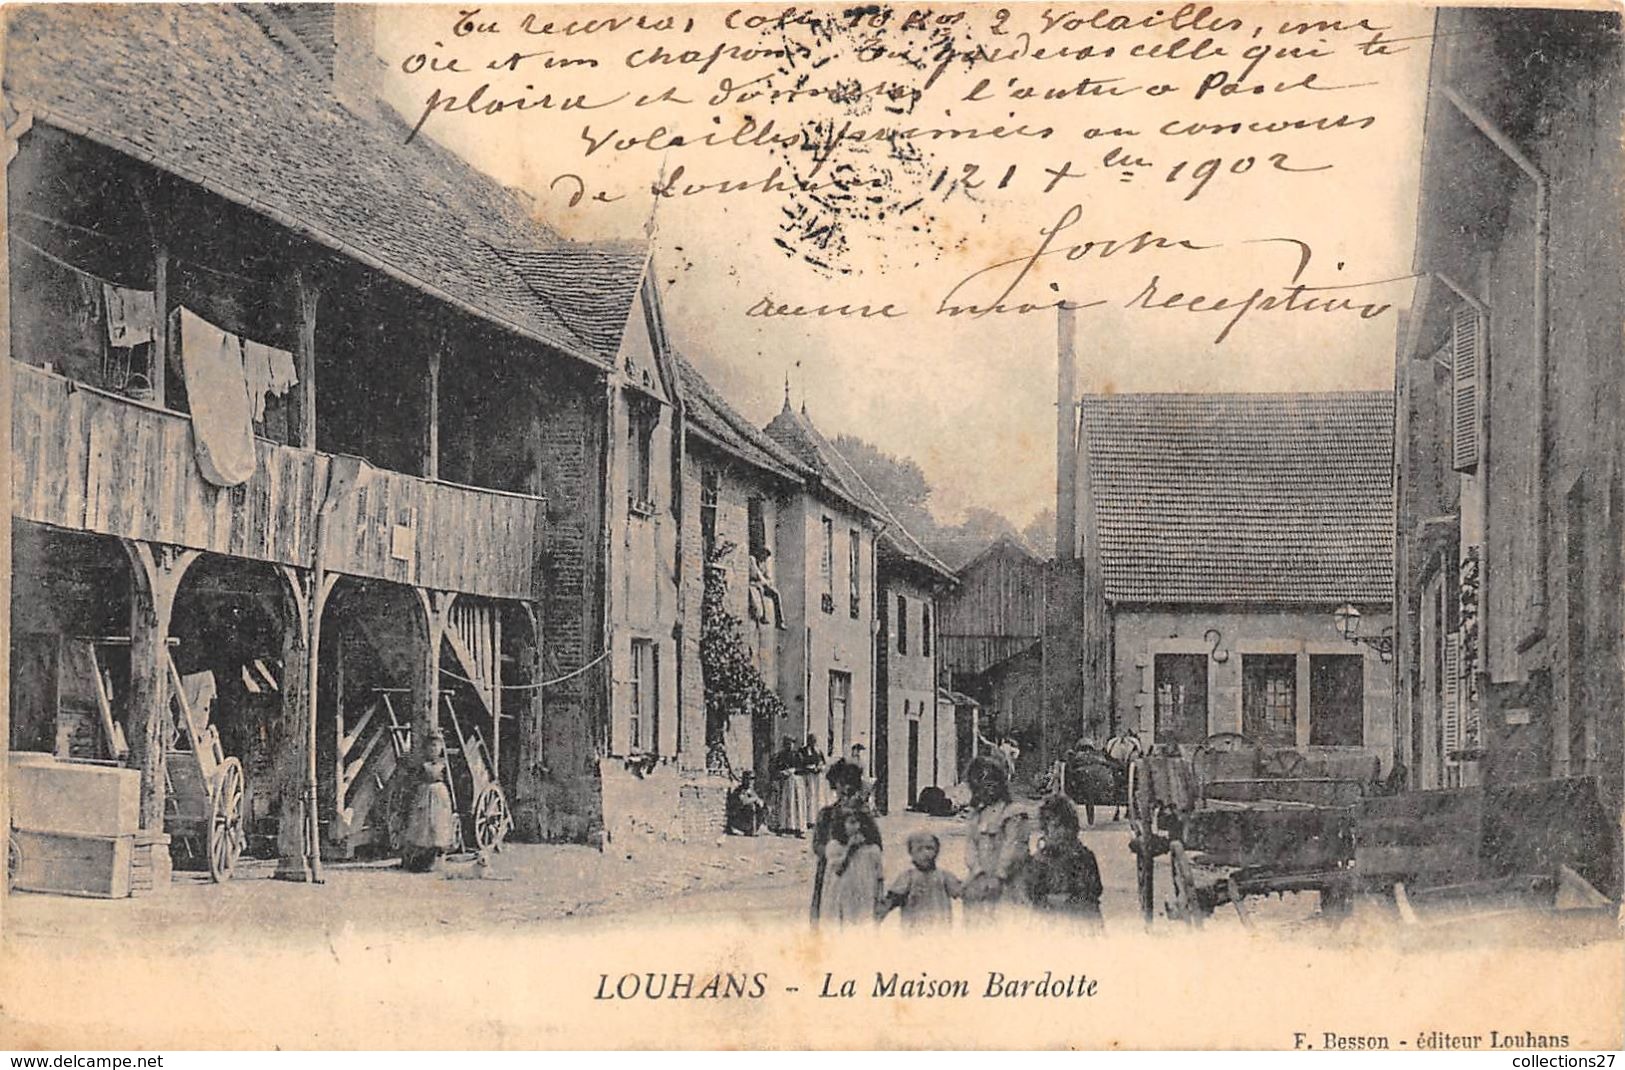 Tu recevras colis 10 Kos 2 Volailles, une
oie et un chapon. Tu garderas celle qui te
plaira et donneras l'autre a Paul
Volailles primées au concours
de Louhans 121 Xbre 1902
accuse moi reception
LOUHANS - La Maison Bardotte
F. Besson - éditeur Louhans
www.delcampe.net
collections27